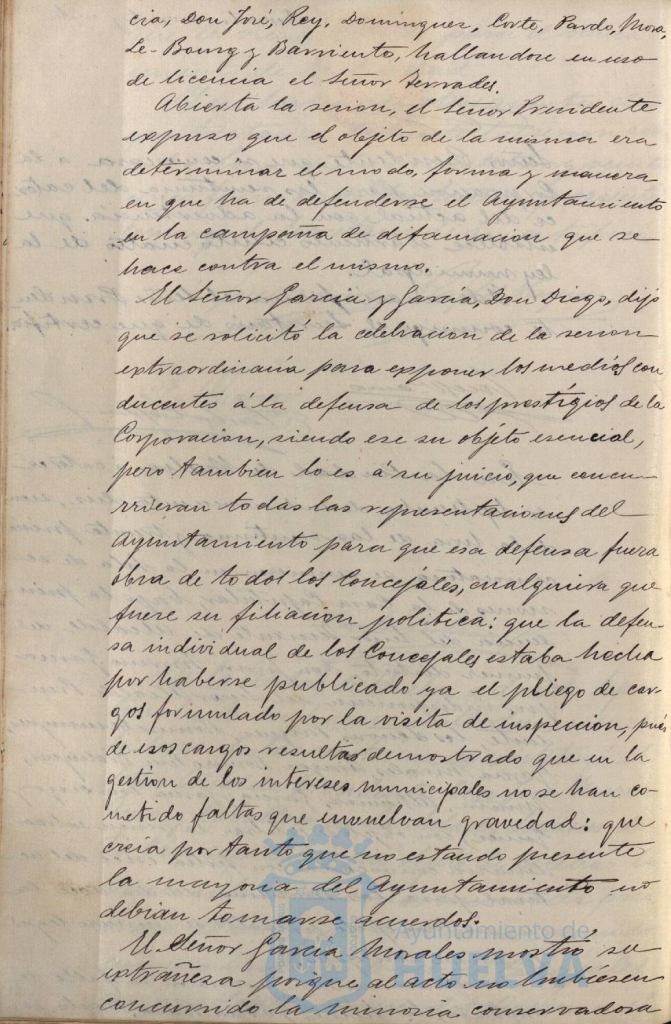 cia, Don José, Rey, Dominguez, Corte, Pardo, Mora,
Le-Bourg y Barriento, hallandose en uso
de licencia el Señor Terrades.
Abierta la sesion, el Señor Presidente
expuso que el objeto de la misma era
determinar el modo, forma y manera
en que ha de defenderse el Ayuntamiento
en la campaña de difamacion que se
hace contra el mismo.
El Señor Garcia y Garcia, Don Diego, dijo
que se solicitó la celebracion de la sesion
extraordinaria para exponer los medios con
ducentes á la defensa de los prestigios de la
Corporacion, siendo ese su objeto esencial,
pero tambien lo es á su juicio, que concu-
rrieran todas las representaciones del
Ayuntamiento para que esa defensa fuera
obra de todos los Concejales, cualquiera que
fuese su filiacion politica: que la defen-
sa individual de los Concejales estaba hecha
por haberse publicado ya el pliego de car-
gos formulado por la visita de inspeccion, pues
de esos cargos resultar demostrado que en la
gestion de los intereses municipales no se han co-
metido faltas que envuelvan gravedad: que
creia por tanto que no estando presente
la mayoria del Ayuntamiento no
debian tomarse acuerdos.
El Señor Garcia Morales mostró su
extrañeza porque al acto no hubiesen
concurrido la minoria conservadora
Ayuntamiento de
HUELVA